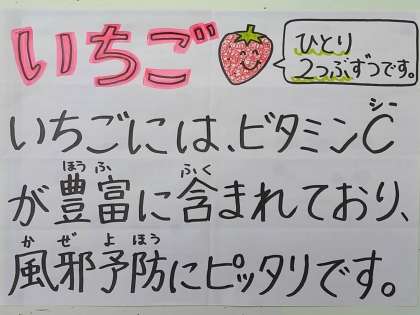 いちご
ひとり
2つぶずつです。
いちごには、ビタミンC
シー
が豊富に含まれており、
ほうふ ふく
風邪予防にピッタリです。
かぜよぼう